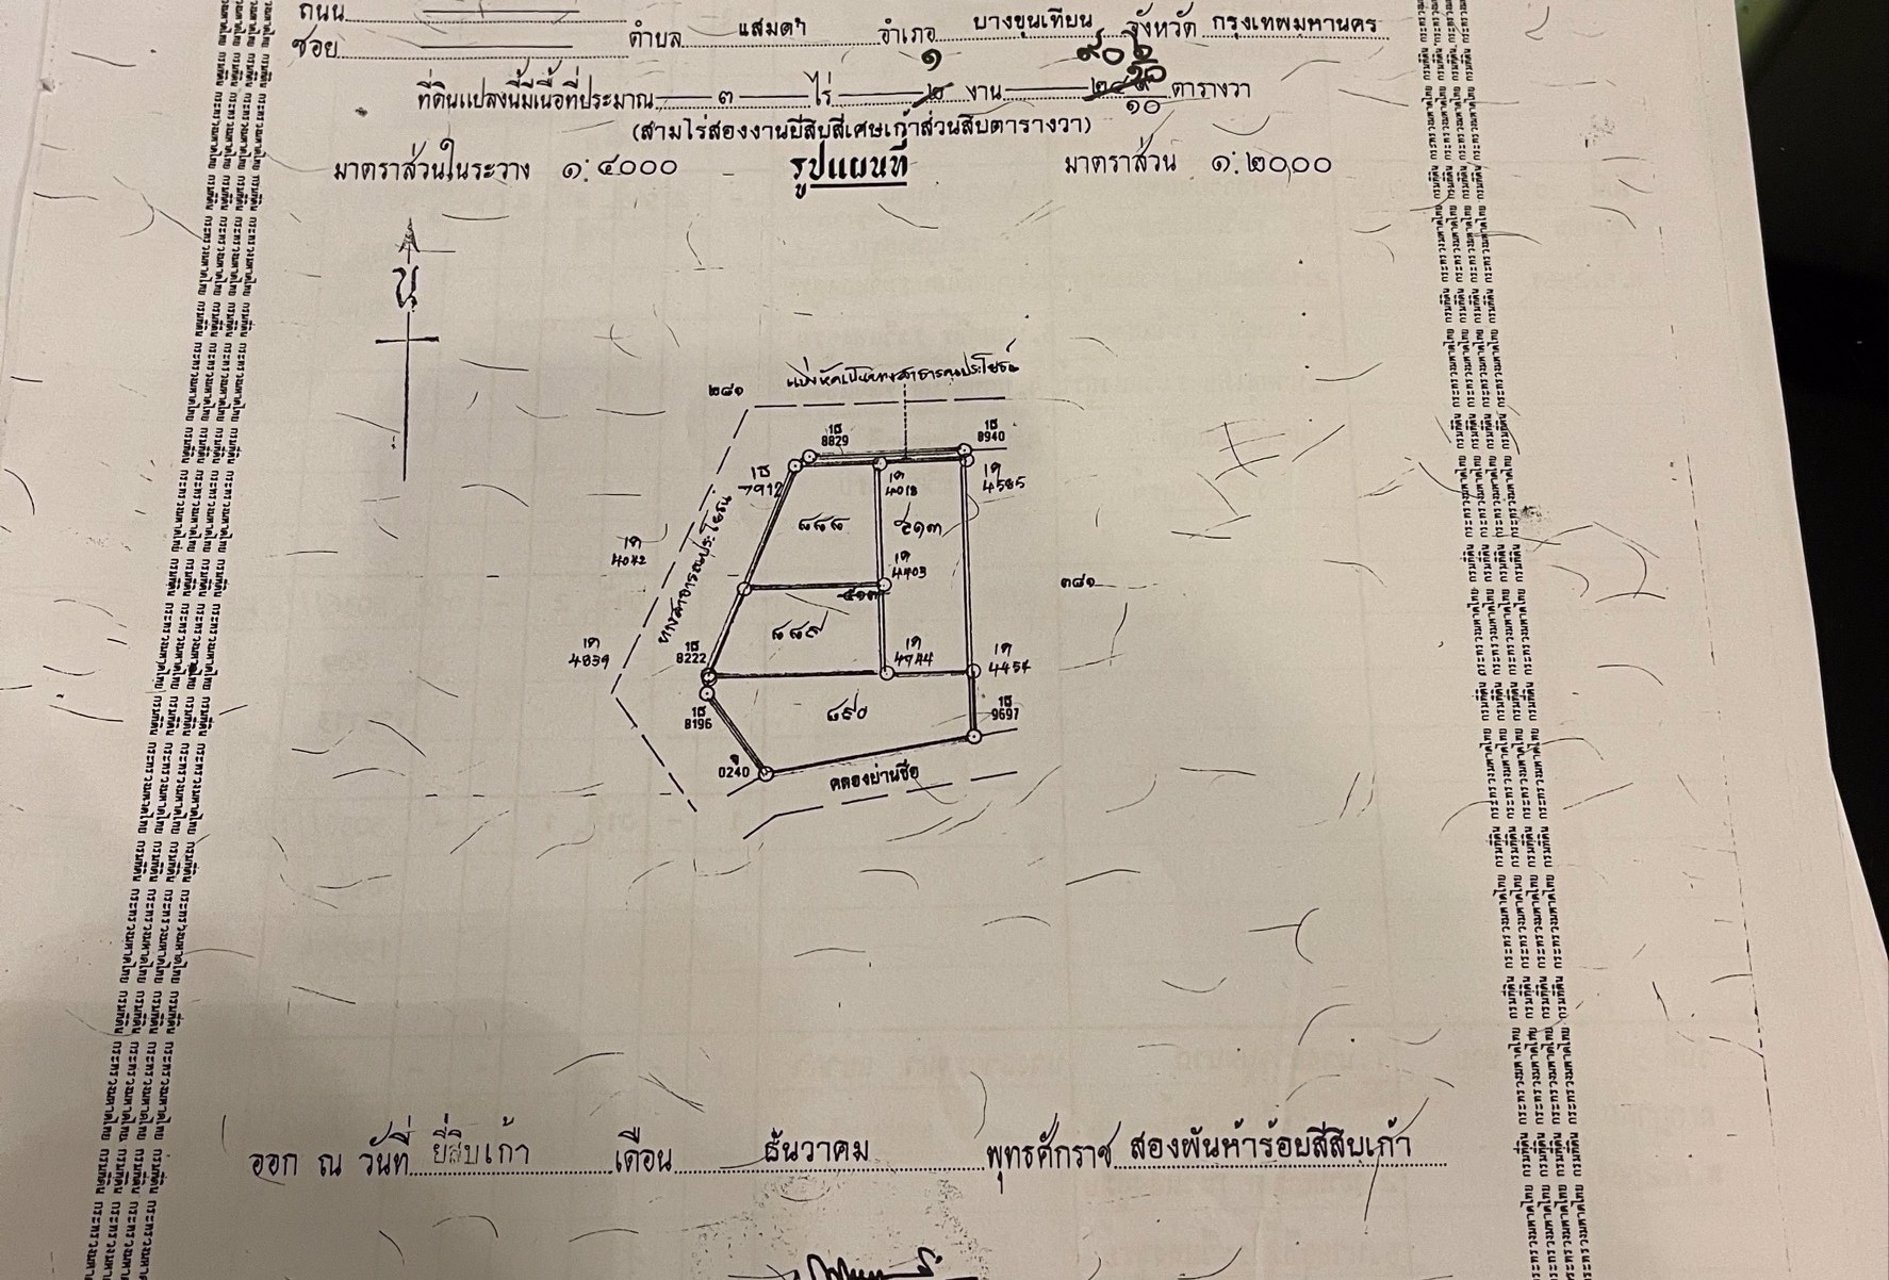 ถนน
ซอย ตำบล แสมดำ อำเภอ บางขุนเทียน จังหวัด กรุงเทพมหานคร
๑ ๙๐
ที่ดินแปลงนี้มีเนื้อที่ประมาณ ๓ ไร่ ๒ งาน ๒๔ ๙ ๑๐ ตารางวา
(สามไร่สองงานยี่สิบสี่เศษเก้าส่วนสิบตารางวา)
มาตราส่วนในระวาง ๑:๔๐๐๐ รูปแผนที่ มาตราส่วน ๑:๒๐๐๐
น
แบ่งหักเป็นทางสาธารณประโยชน์
๒๘๑
1ธ 8829
1ธ 8940
1ธ 7912
1ด 4018
1ด 4585
๘๘๘
๕๑๓
ทางสาธารณประโยชน์
1ด 4042
1ด 4403
๕๑๓
๓๘๑
๘๘๗
1ด 4839
1ธ 8222
1ด 4744
1ด 4454
1ธ 8196
๘๙๐
1ธ 9697
0240
คลองย่านซื่อ
ออก ณ วันที่ ยี่สิบเก้า เดือน ธันวาคม พุทธศักราช สองพันห้าร้อยสี่สิบเก้า
กระทรวงมหาดไทย กรมที่ดิน